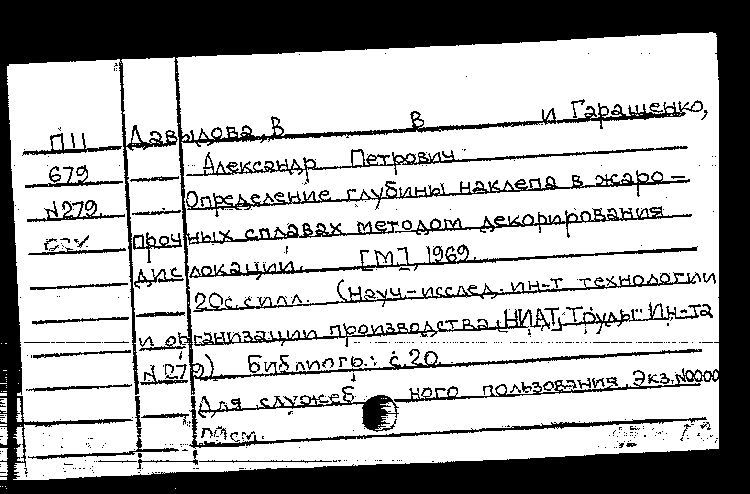 П11 Давыдова, В В и Гаращенко,
679 Александр Петрович
N279 Определение глубины наклепа в жаро-
прочных сплавах методом декорирования
дислокаций. [М], 1969.
20с. с илл. (Науч-исслед. ин-т технологии
и организации производства, НИАТ, Труды Ин-та
N279) Библиогр.: с. 20
Для служебного пользования. Экз. N0000